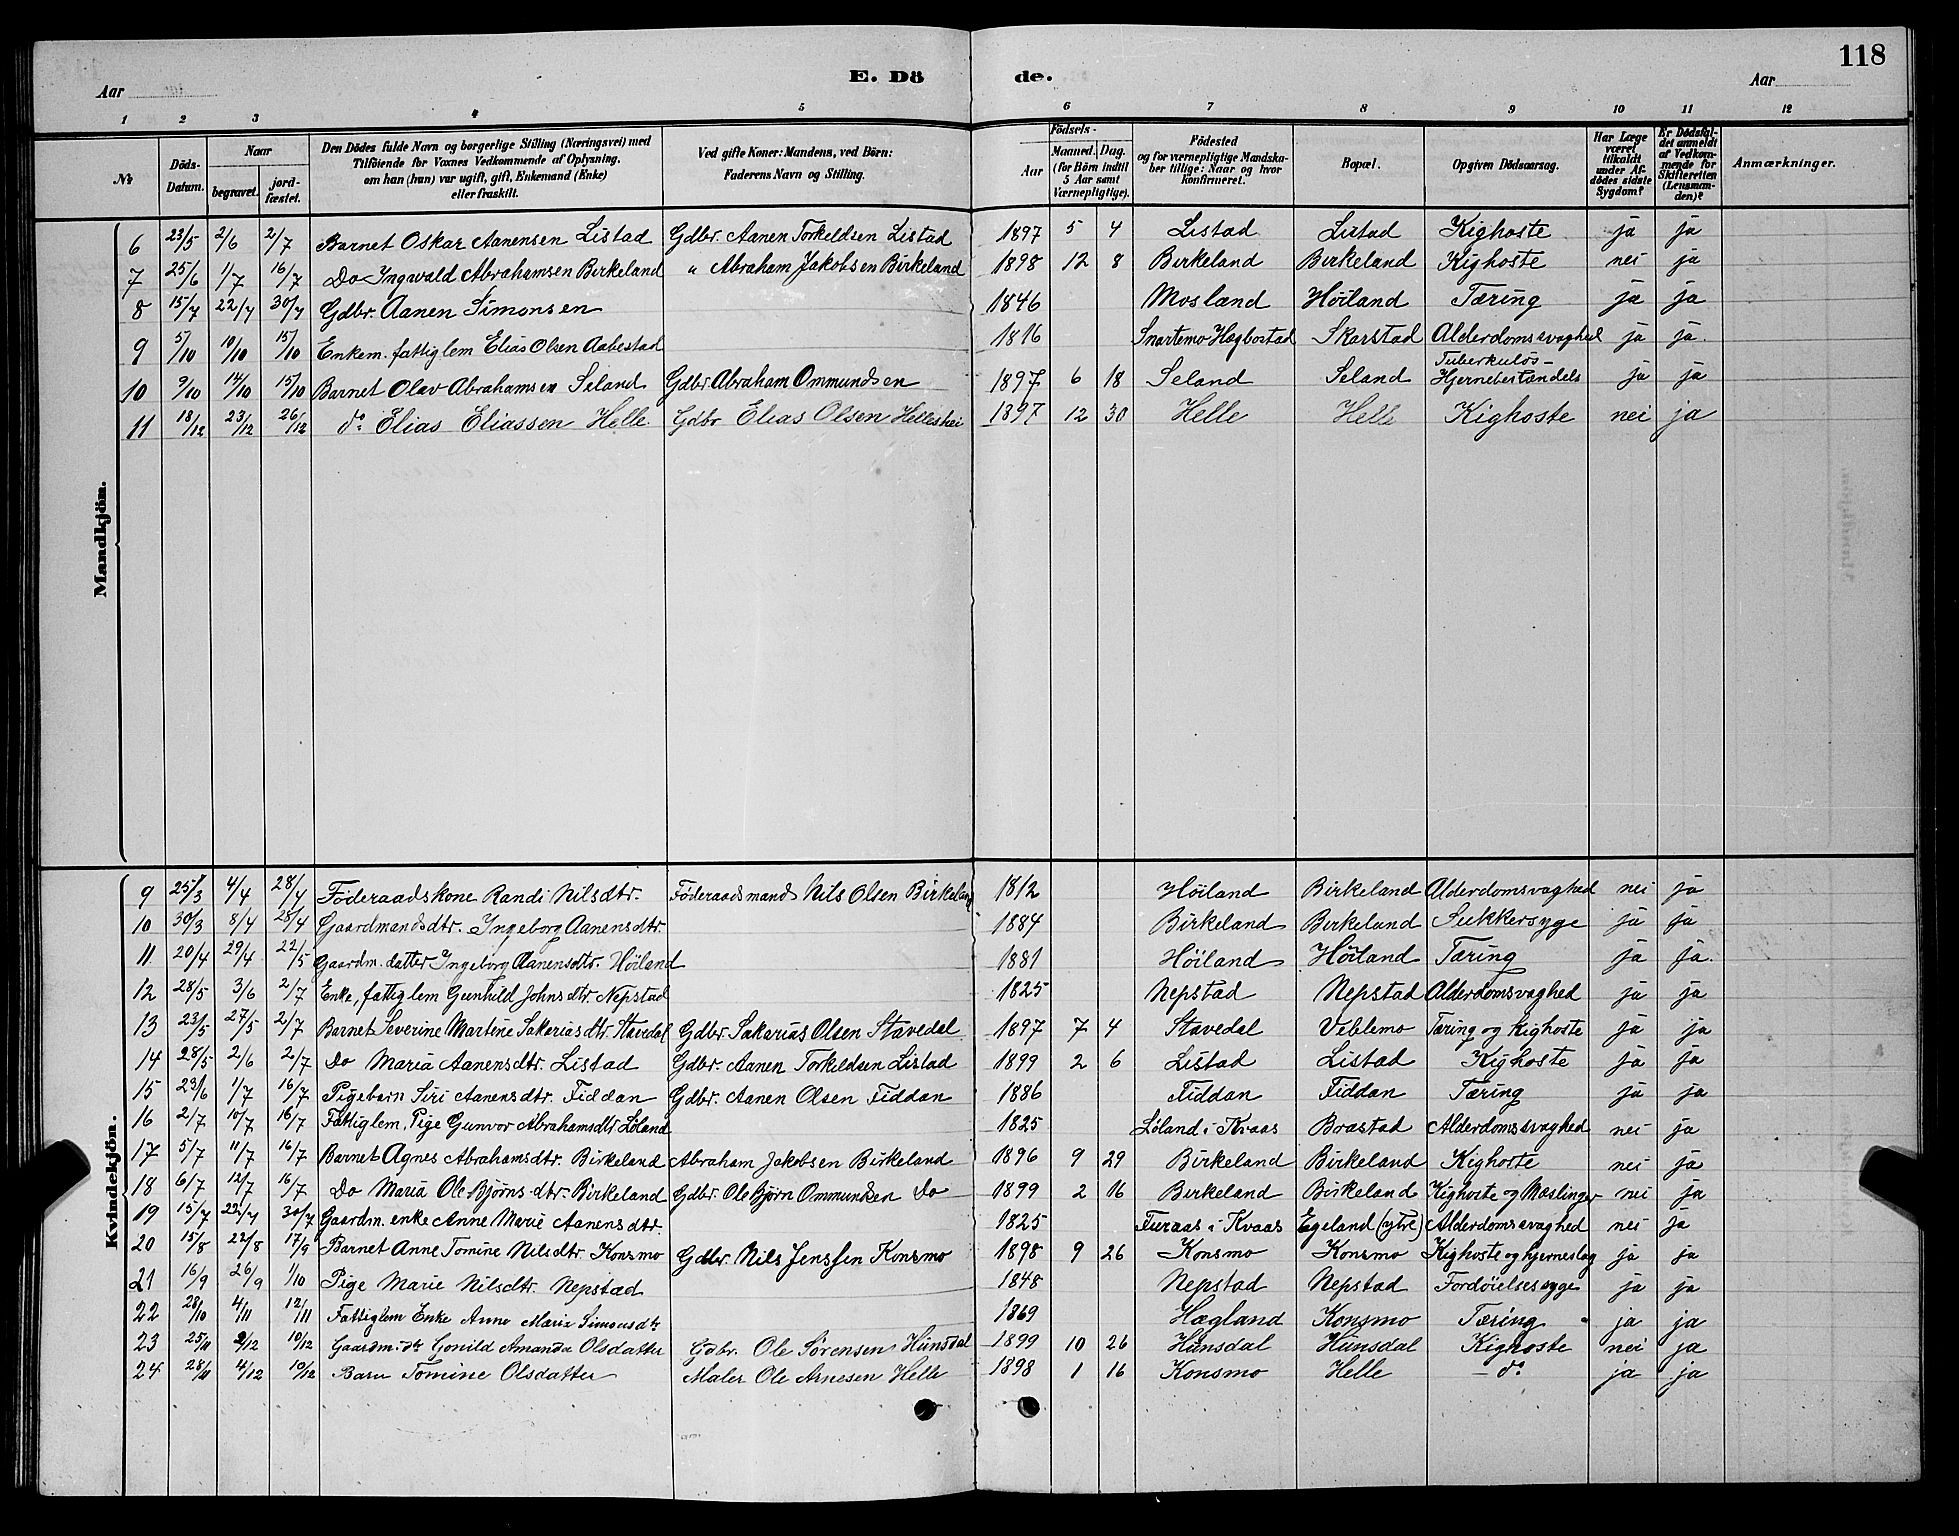 118
E. Dö de.
Aar Aar
1 2 3 4 5 6 7 8 9 10 11 12
№ Döds-Datum. Naar begravet. jordfæstet. Den Dödes fulde Navn og borgerlige Stilling (Næringsvei) med Tilföiende for Voxnes Vedkommende af Oplysning, om han (hun) var ugift, gift, Enkemand (Enke) eller fraskilt. Ved gifte Koner: Mandens, ved Börn: Faderens Navn og Stilling. Födsels- Aar Maaned. Dag. (for Börn indtil 5 Aar samt Værnepligtige). Födested og for værnepligtige Mandskaber tillige: Naar og hvor konfirmeret. Bopæl. Opgiven Dödsaarsag. Har Læge været tilkaldt under Afdödes sidste Sygdom? Er Dödsfaldet anmeldt af Vedkommende for Skifteretten (Lensmanden)? Anmærkninger.
Mandkjön.
6 23/5 2/6 2/7 Barnet Oskar Aanensen Listad Gdbr. Aanen Torkeldsen Listad 1897 5 4 Listad Listad Kighoste ja ja
7 25/6 1/7 16/7 Do Ingwald Abrahamsen Birkeland " Abraham Jakobsen Birkeland 1898 12 8 Birkeland Birkeland Kighoste nei ja
8 15/7 22/7 30/7 Gdbr. Aanen Simonsen 1846 Mosland Höiland Tæring ja ja
9 5/10 10/10 15/10 Enkem. fattiglem Elias Olsen Aabestad 1816 Snartemo Hægbostad Skarstad Alderdomssvaghed ja ja.
10 9/10 14/10 15/10 Barnet Olav Abrahamsen Seland Gdbr. Abraham Ommundsen 1897 6 18 Seland Seland Tuberkulös-Hjernebetændels ja ja
11 18/12 23/12 26/12 do Elias Eliassen Helle Gdbr Elias Olsen Helleshei 1897 12 30 Helle Helle Kighoste nei ja
Kvindekjön.
9 25/3 4/4 28/4 Föderaadskone Randi Nilsdtr. Föderaadsmand Nils Olsen Birkeland 1812 Höiland Birkeland Alderdomsvaghed nei ja
10 30/3 8/4 28/4 Gaardmandsdtr. Ingeborg Aanensdtr. 1884 Birkeland Birkeland Sukkersyge ja ja
11 20/4 29/4 22/5 Gaardm. datter Ingeborg Aanensdtr. Höiland 1881 Höiland Höiland Tæring ja ja.
12 28/5 3/6 2/7 Enke, fattiglem Gunhild Johnsdtr. Nepstad 1825 Nepstad Nepstad Alderdomsvaghed ja ja
13 23/5 27/5 2/7 Barnet Severine Martine Sakariasdtr Stavedal Gdbr. Sakarias Olsen Stavedal 1897 7 4 Stavedal Veblemo Tæring og kighoste ja ja
14 28/5 2/6 2/7 Do Maria Aanensdtr. Listad Gdbr. Aanen Torkeldsen Listad 1899 2 6 Listad Listad Kighoste ja ja
15 23/6 1/7 16/7 Pigebarn Siri Aanensdtr. Fiddan Gdbr. Aanen Olsen Fiddan 1886 Fiddan Fiddan Tæring ja ja
16 2/7 10/7 16/7 Fattiglem, Pige Gunvor Abrahamsdtr Löland 1825 Löland i Kvaas Brastad Alderdomssvaghed nei ja
17 5/7 11/7 16/7 Barnet Agnes Abrahamsdtr. Birkeland Abraham Jakobsen Birkeland 1896 9 29 Birkeland Birkeland Kighoste nei ja
18 6/7 12/7 16/7 Do Maria Ole Björnsdtr. Birkeland Gdbr. Ole Björn Ommundsen Do 1899 2 16 Birkeland Birkeland Kighoste og Mæslinger nei ja
19 15/7 22/7 30/7 Gaardm. enke Anne Marie Aanensdtr. 1825 Turaas i Kvaas Egeland (ytre) Alderdomssvaghed nei ja
20 15/8 22/8 17/9 Barnet Anne Tomine Nilsdtr. Konsmo Gdbr. Nils Jenssen Konsmo 1898 9 26 Konsmo Konsmo Kighoste og hjerneslag ja ja
21 16/9 26/9 1/10 Pige Marie Nilsdtr. Nepstad 1848 Nepstad Nepstad Fordöielsessyge ja ja
22 28/10 4/11 12/11 Fattiglem Enke Anne Marie Simonsdtr 1869 Hægland Konsmo Tæring ja ja
23 25/11 2/12 10/12 Gaardm. dtr Gonild Amanda Olsdatter Gdbr. Ole Sörensen Hunsdal 1899 10 26 Hunsdal Hunsdal Kighoste nei ja
24 28/11 4/12 10/12 Barn Tomine Olsdatter Maler Ole Arnesen Helle 1898 1 16 Konsmo Helle – do ja ja